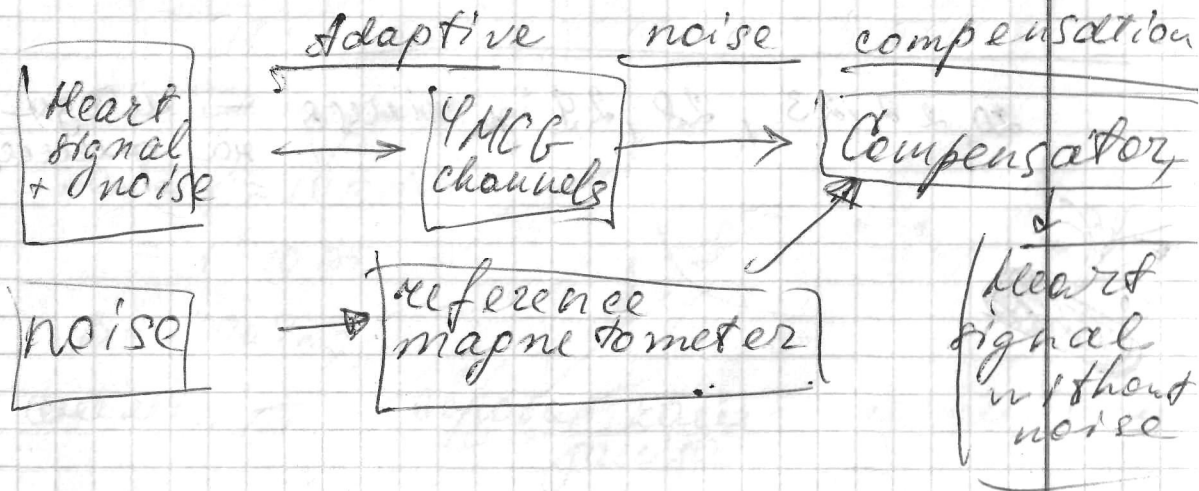 Adaptive noise compensation
Heart
signal
+ noise
4MCG
channels
Compensator
noise
reference
magnetometer
Heart
signal
without
noise